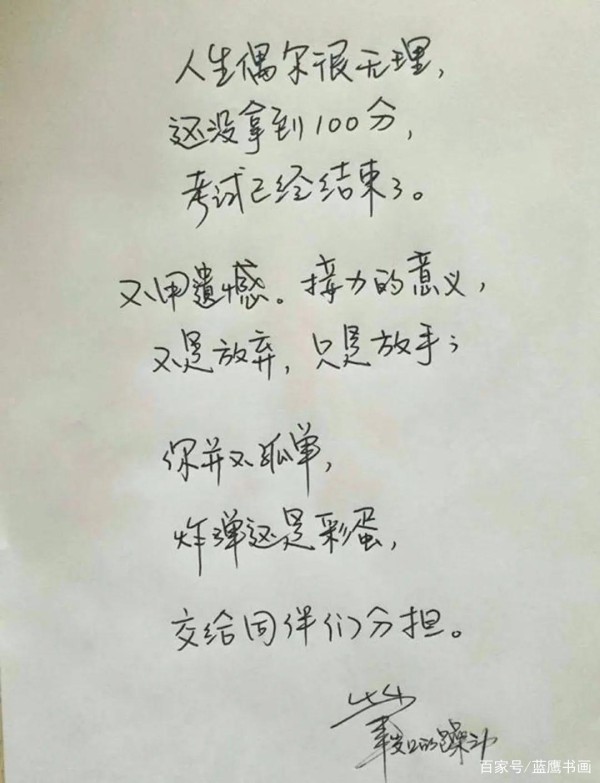 人生偶尔很无理，
还没拿到100分，
考试已经结束了。
不用遗憾。接力的意义，
不是放弃，只是放手；
你并不孤单，
炸弹还是彩蛋，
交给同伴们分担。
的
百家号/蓝鹰书画